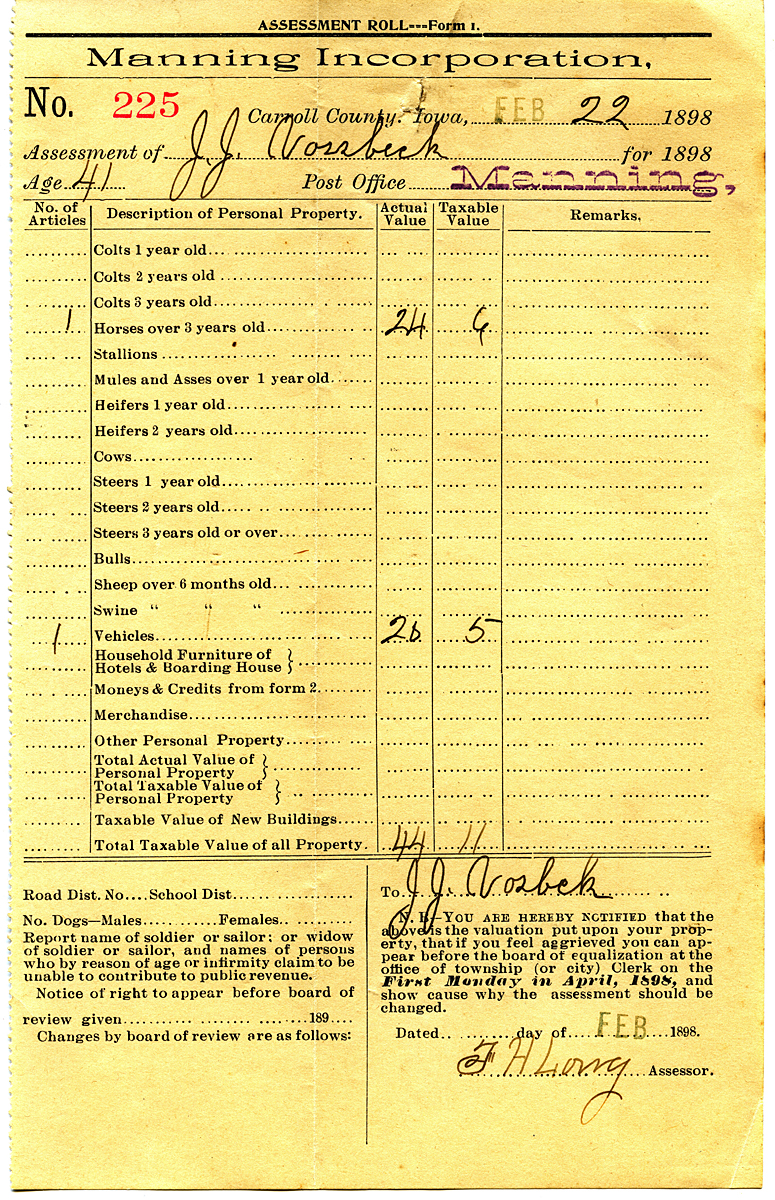 ASSESSMENT ROLL---Form 1.
Manning Incorporation,
No. 225 Carroll County. Iowa, FEB 22 1898
Assessment of J. J. Vossbeck for 1898
Age 41 Post Office Manning,
No. of Articles Description of Personal Property. Actual Value Taxable Value Remarks.
Colts 1 year old
Colts 2 years old
Colts 3 years old
1 Horses over 3 years old 24 6
Stallions
Mules and Asses over 1 year old
Heifers 1 year old
Heifers 2 years old
Cows
Steers 1 year old
Steers 2 years old
Steers 3 years old or over
Bulls
Sheep over 6 months old
Swine “ “ “
1 Vehicles 20 5
Household Furniture of
Hotels & Boarding House }
Moneys & Credits from form 2
Merchandise
Other Personal Property
Total Actual Value of
Personal Property }
Total Taxable Value of
Personal Property }
Taxable Value of New Buildings
Total Taxable Value of all Property. 44 11
Road Dist. No.... School Dist
No. Dogs—Males Females
Report name of soldier or sailor; or widow
of soldier or sailor, and names of persons
who by reason of age or infirmity claim to be
unable to contribute to public revenue.
Notice of right to appear before board of
review given 189
Changes by board of review are as follows:
To J. J. Vosbeck
N. B.—YOU ARE HEREBY NOTIFIED that the
above is the valuation put upon your prop-
erty, that if you feel aggrieved you can ap-
pear before the board of equalization at the
office of township (or city) Clerk on the
First Monday in April, 1898, and
show cause why the assessment should be
changed.
Dated day of FEB 1898.
F H Long Assessor.